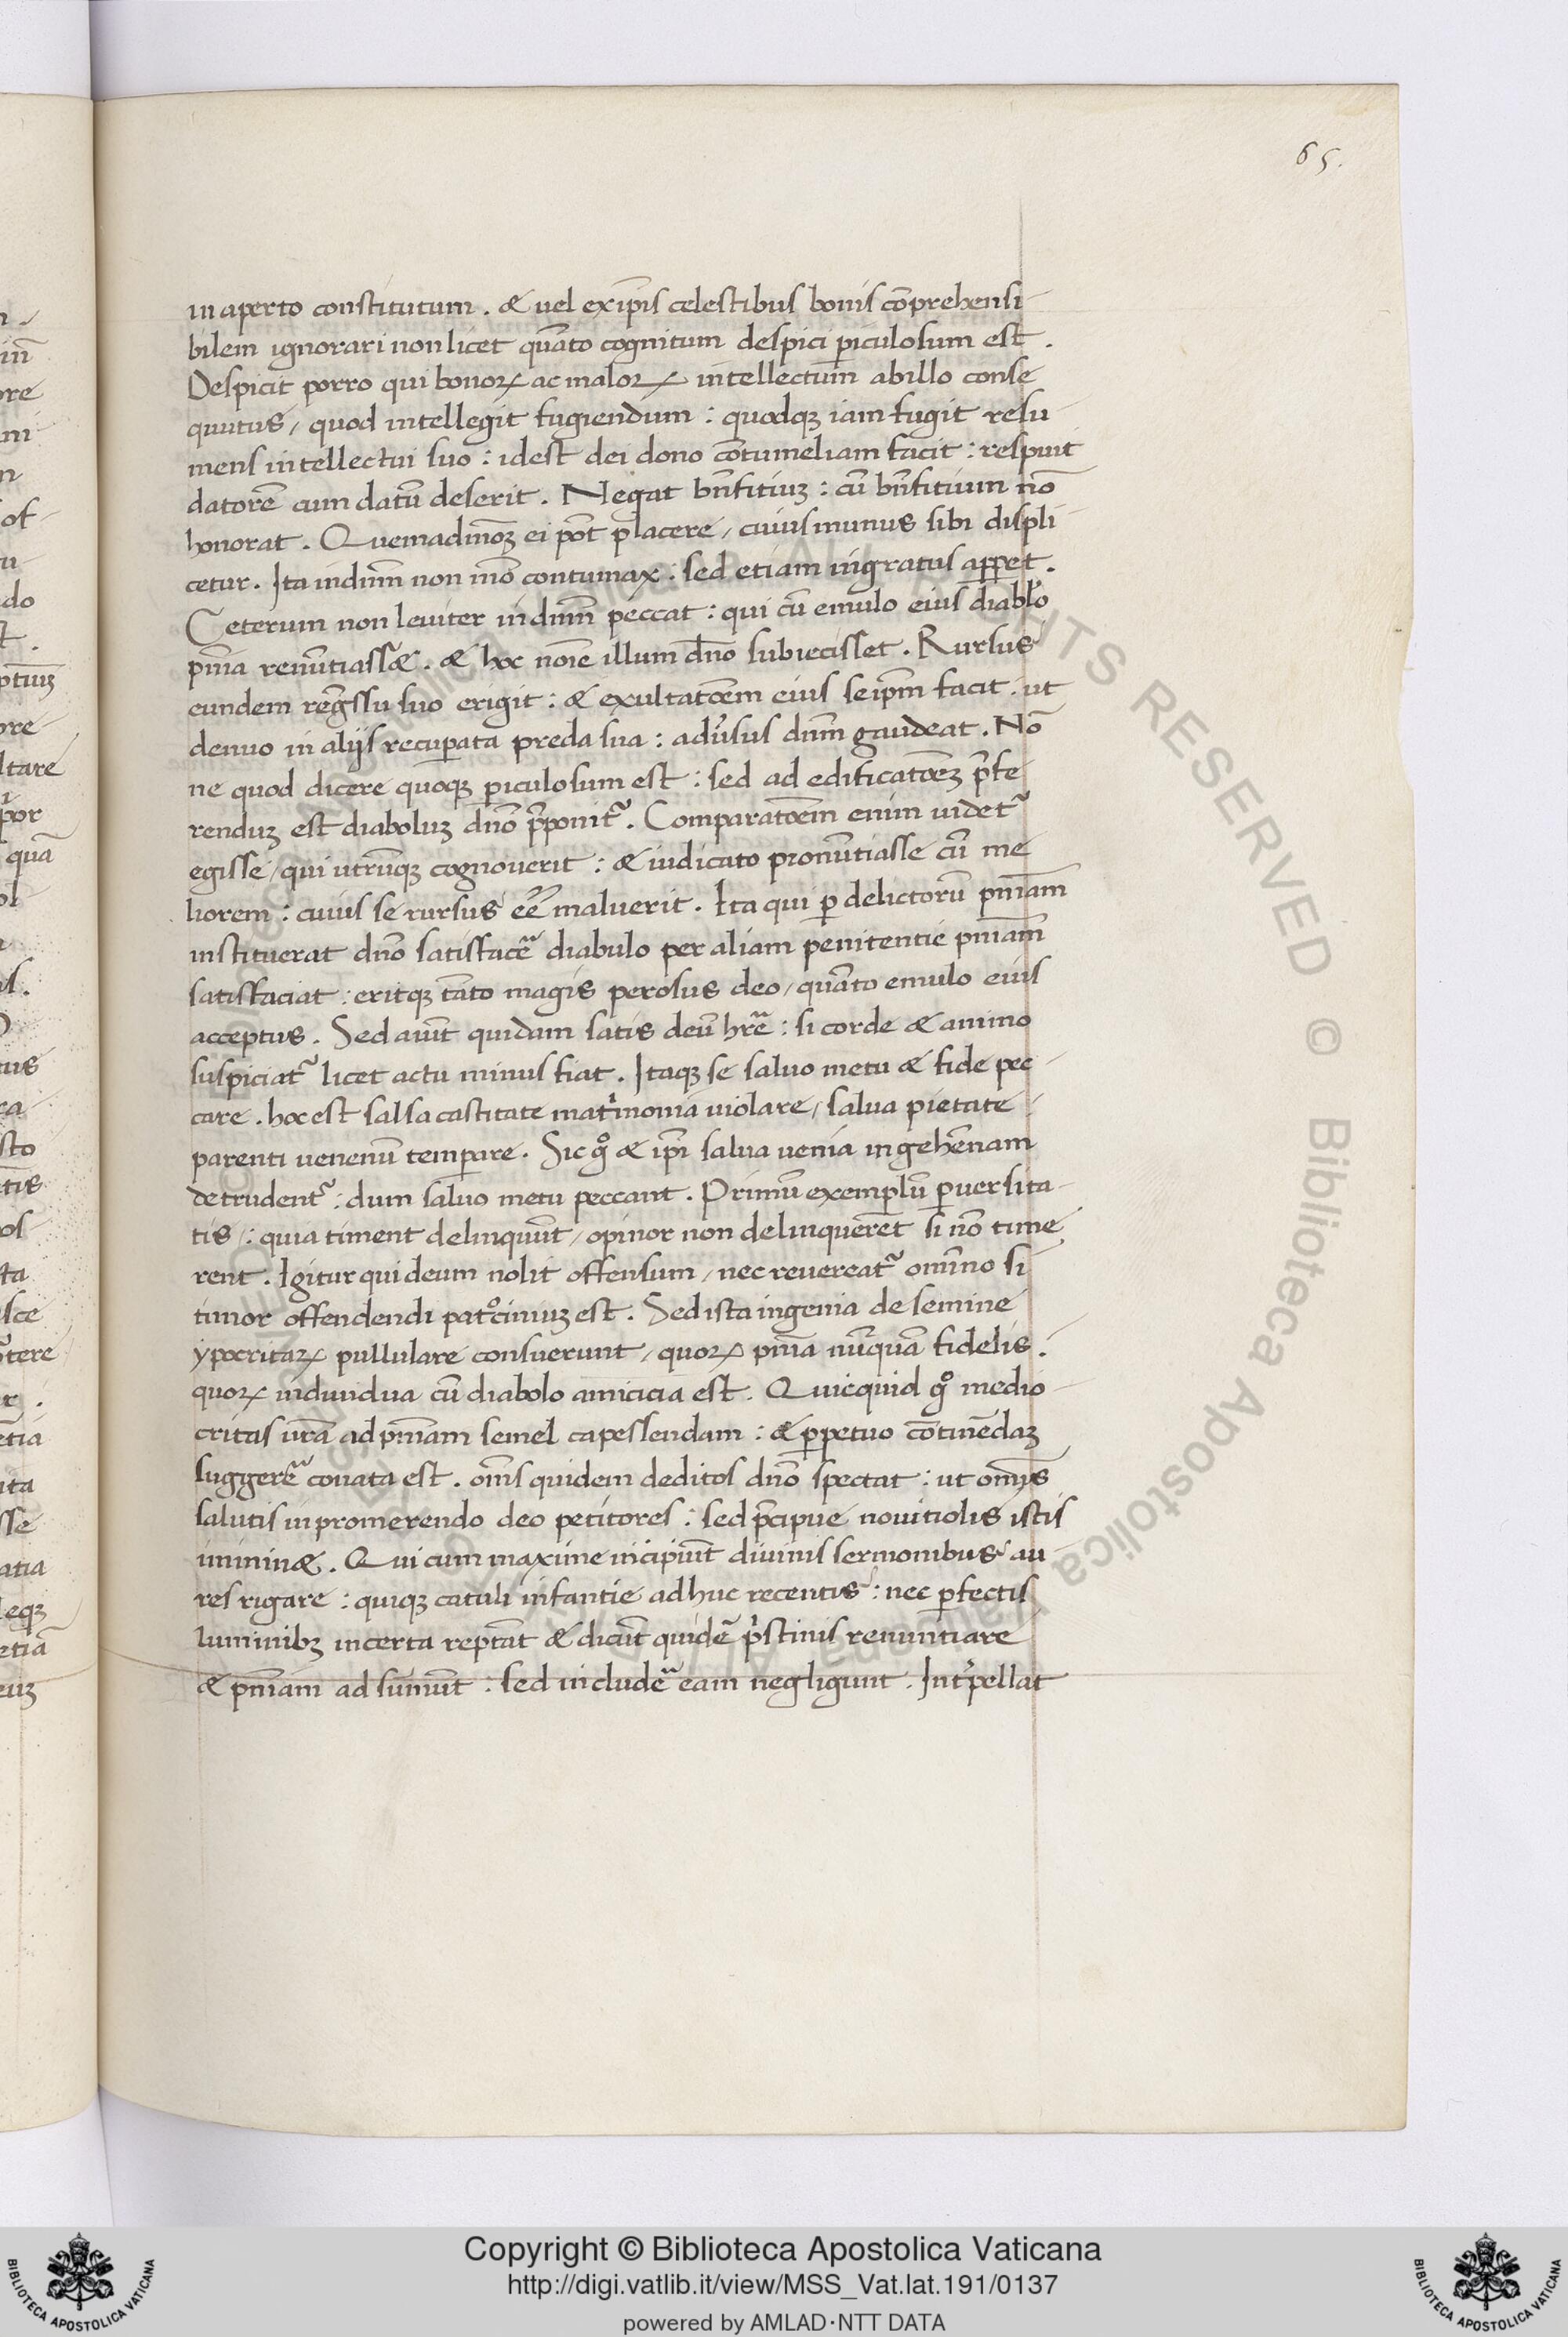 65.
in aperto constitutum . & uel ex ip̄is celestibus bonis cōprehensi-
bilem ignorari non licet quāto cognitum despici ꝑiculosum est .
Despicit porro qui bonoꝝ ac maloꝝ intellectum ab illo conse
quutus / quod intellegit fugiendum : quodqꝫ iam fugit resu-
mens intellectui suo : idest dei dono cōtumeliam facit : respuit
datorē cum datū deserit . Negat bn̄fitiuꝫ : cū bn̄fitium nō
honorat . Quemadmoꝫ ei pōt placere / cuius munus sibi displi-
cetur . Ita in dn̄m non mō contumax . sed etiam ingratus apꝑet .
Ceterum non leuiter in dn̄m peccat : qui cū emulo eius diabl̄o
pn̄ia renūtiass& . & hoc noīe illum dn̄o subiecisset . Rursus
eundem regr̄ssu suo erigit : & exultatōem eius seip̄m facit . ut
denuo in alijs recuꝑata preda sua : adūsus dn̄m gaudeat . Nō
ne quod dicere quoqꝫ ꝑiculosum est : sed ad edificatōeꝫ p̄fe
renduꝫ est diaboluꝫ dn̄o p̄ponit᷑ . Comparatōem enim uidet᷑
egisse / qui utrūqꝫ cognouerit : & iudicato pronūtiasse cū me
liorem : cuius se rursus eē maluerit . Ita qui ꝑ delictorū pn̄iam
instituerat dn̄o satisfacē diabulo per aliam penitentie pn̄iam
satisfaciat : eritqꝫ tāto magis perosus deo / quāto emulo eius
acceptus . Sed aiūt quidam satis deū hr̄e : si corde & animo
suspiciat᷑ licet actu minus fiat . Itaqꝫ se saluo metu & fide pec-
care . hoc est salsa castitate mat̓monia uiolare / salua pietate
parenti uenenū temꝑare . Sic gͦ & ip̄i salua uenia in gehēnam
detrudent᷑ : dum saluo metu peccant . Primū exemplū ꝑuersita-
tis : quia timent delinquūt / opinor non delinquerēt si nō time
rent . Igitur qui deum nolit offensum / nec reuereat᷑ omīno si
timor offendendi patͦcinuꝫ est . Sed ista ingenia de semine
ypocritaꝝ pullulare consuerunt / quoꝝ pn̄ia nūquā fidelis .
quoꝝ indiuidua cū diabolo amicicia est . Quicquid gͦ medio-
critas nr̄a ad pn̄iam semel capessendam : & ꝑpetuo cōtinēdaꝫ
suggerē conata est . om̄s quidem deditos dn̄o spectat : ut om̄ys
salutis in promerendo deo petitores : sed p̄cipue nouitiolis istis
iminin& . Qui cum maxime incipiūt diuinis sermonibus au-
res rigare : quiqꝫ catuli infantie adhuc recentis : nec ꝑfectis
luminibꝫ incerta reptāt & dicūt quidē p̓stinis renuntiare
& pn̄iam ad sumūt : sed includē eam negligunt . Int̓pellat
Copyright © Biblioteca Apostolica Vaticana
http://digi.vatlib.it/view/MSS_Vat.lat.191/0137
powered by AMLAD·NTT DATA